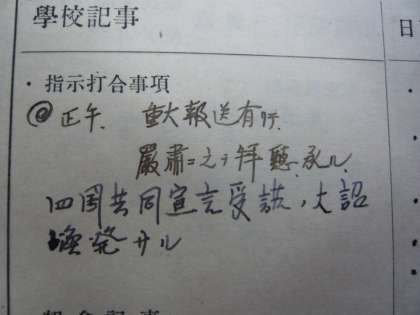 學校記事
日
・指示打合事項
@ 正午、重大報送有リ
嚴肅ニ之ヲ拝聽、承ル、
四国共同宣言受諾、大詔
渙発サル